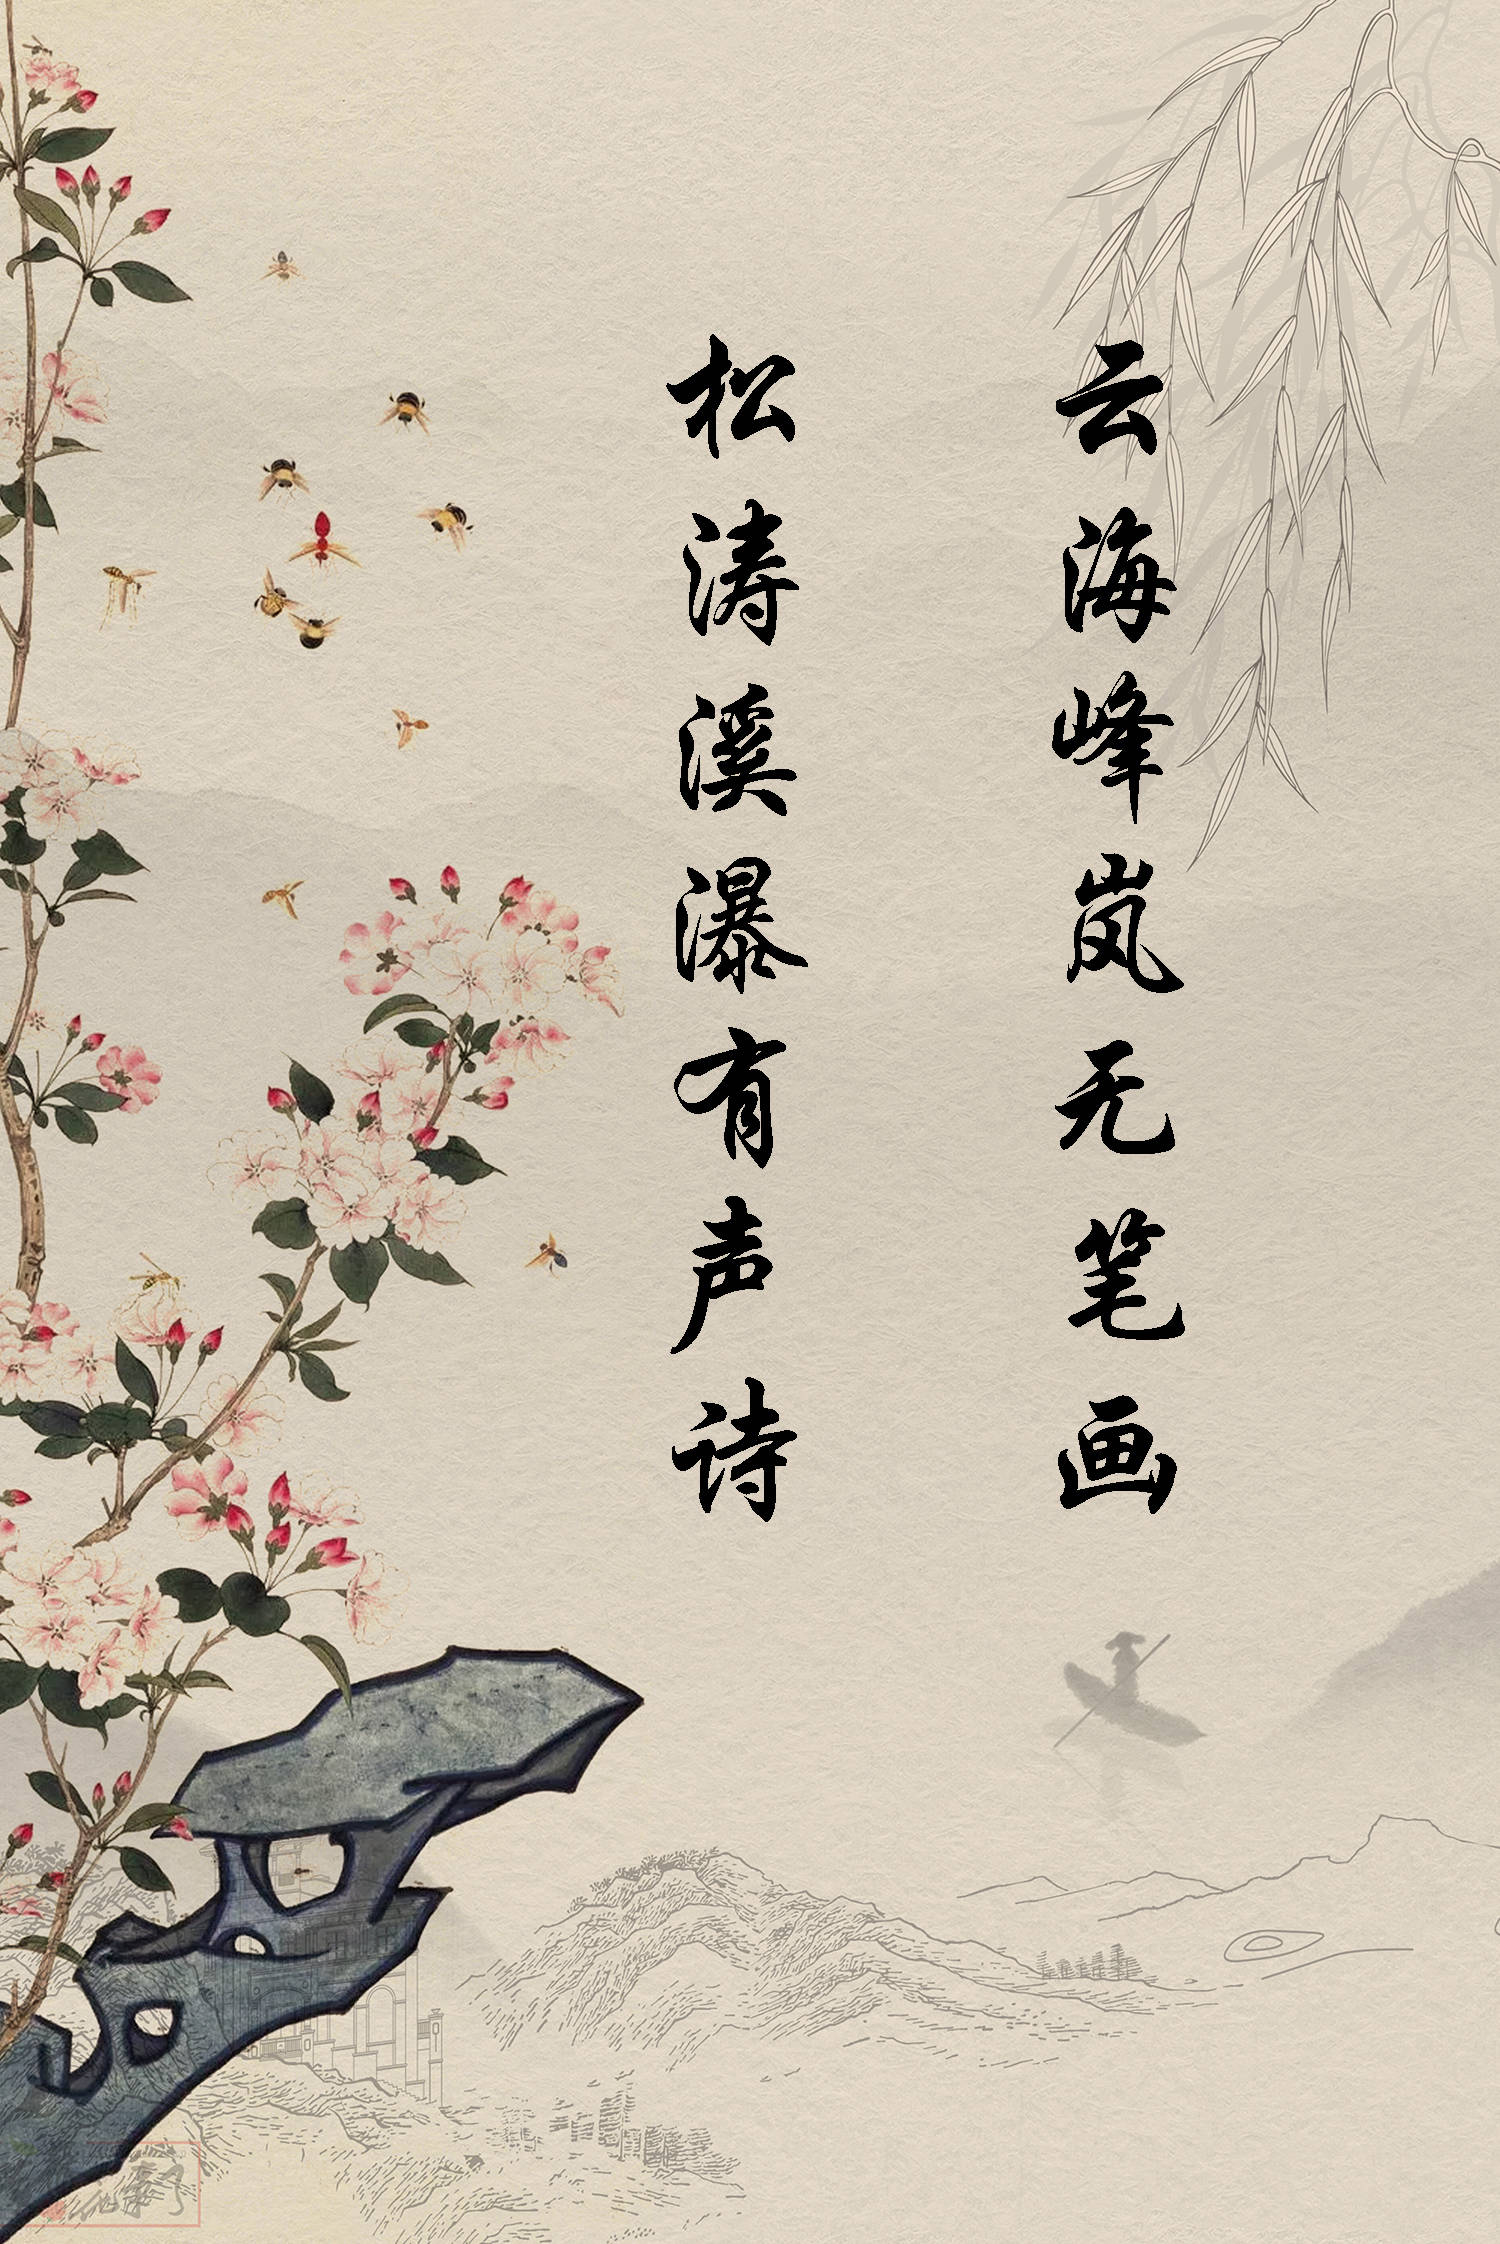 云海峰岚无笔画
松涛溪瀑有声诗